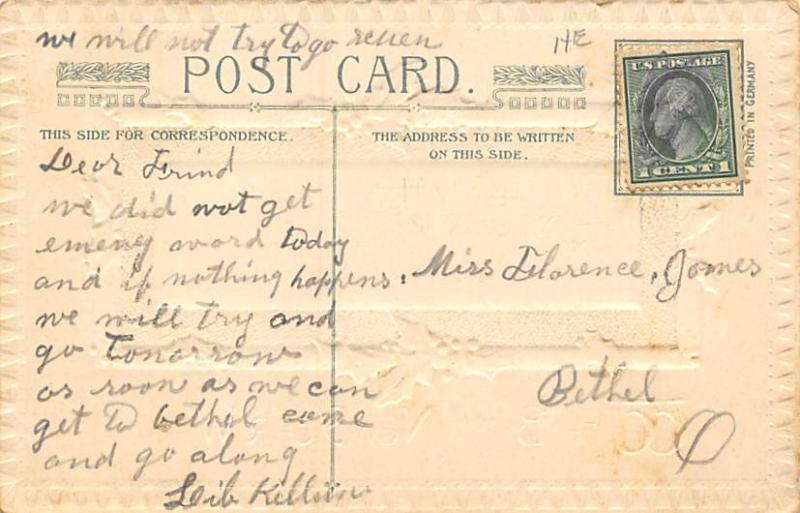 we will not try to go
HE
POST CARD.
U.S. POSTAGE
1 CENT 1
PRINTED IN GERMANY
THIS SIDE FOR CORRESPONDENCE.
THE ADDRESS TO BE WRITTEN
ON THIS SIDE.
Dear Frind
we did not get
word today
and if nothing happens.
we will try and
go tomorrow
as soon as we can
get to bethel come
and go along
Lib Killian
Miss Florence, Jones
Bethel
O